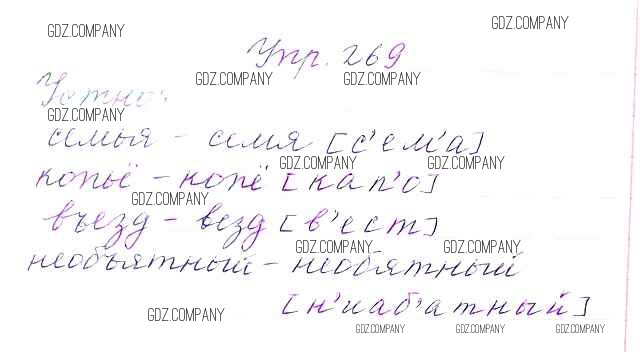 GDZ.COMPANY
GDZ.COMPANY
Упр. 269
GDZ.COMPANY
GDZ.COMPANY
Устно:
GDZ.COMPANY
семья – семя [с'ем'а]
GDZ.COMPANY
GDZ.COMPANY
копьё – копё [кап'о]
GDZ.COMPANY
въезд – везд [в'ест]
GDZ.COMPANY
GDZ.COMPANY
необъятный – необятный
[н'иаб'атный]
GDZ.COMPANY
GDZ.COMPANY
GDZ.COMPANY
GDZ.COMPANY